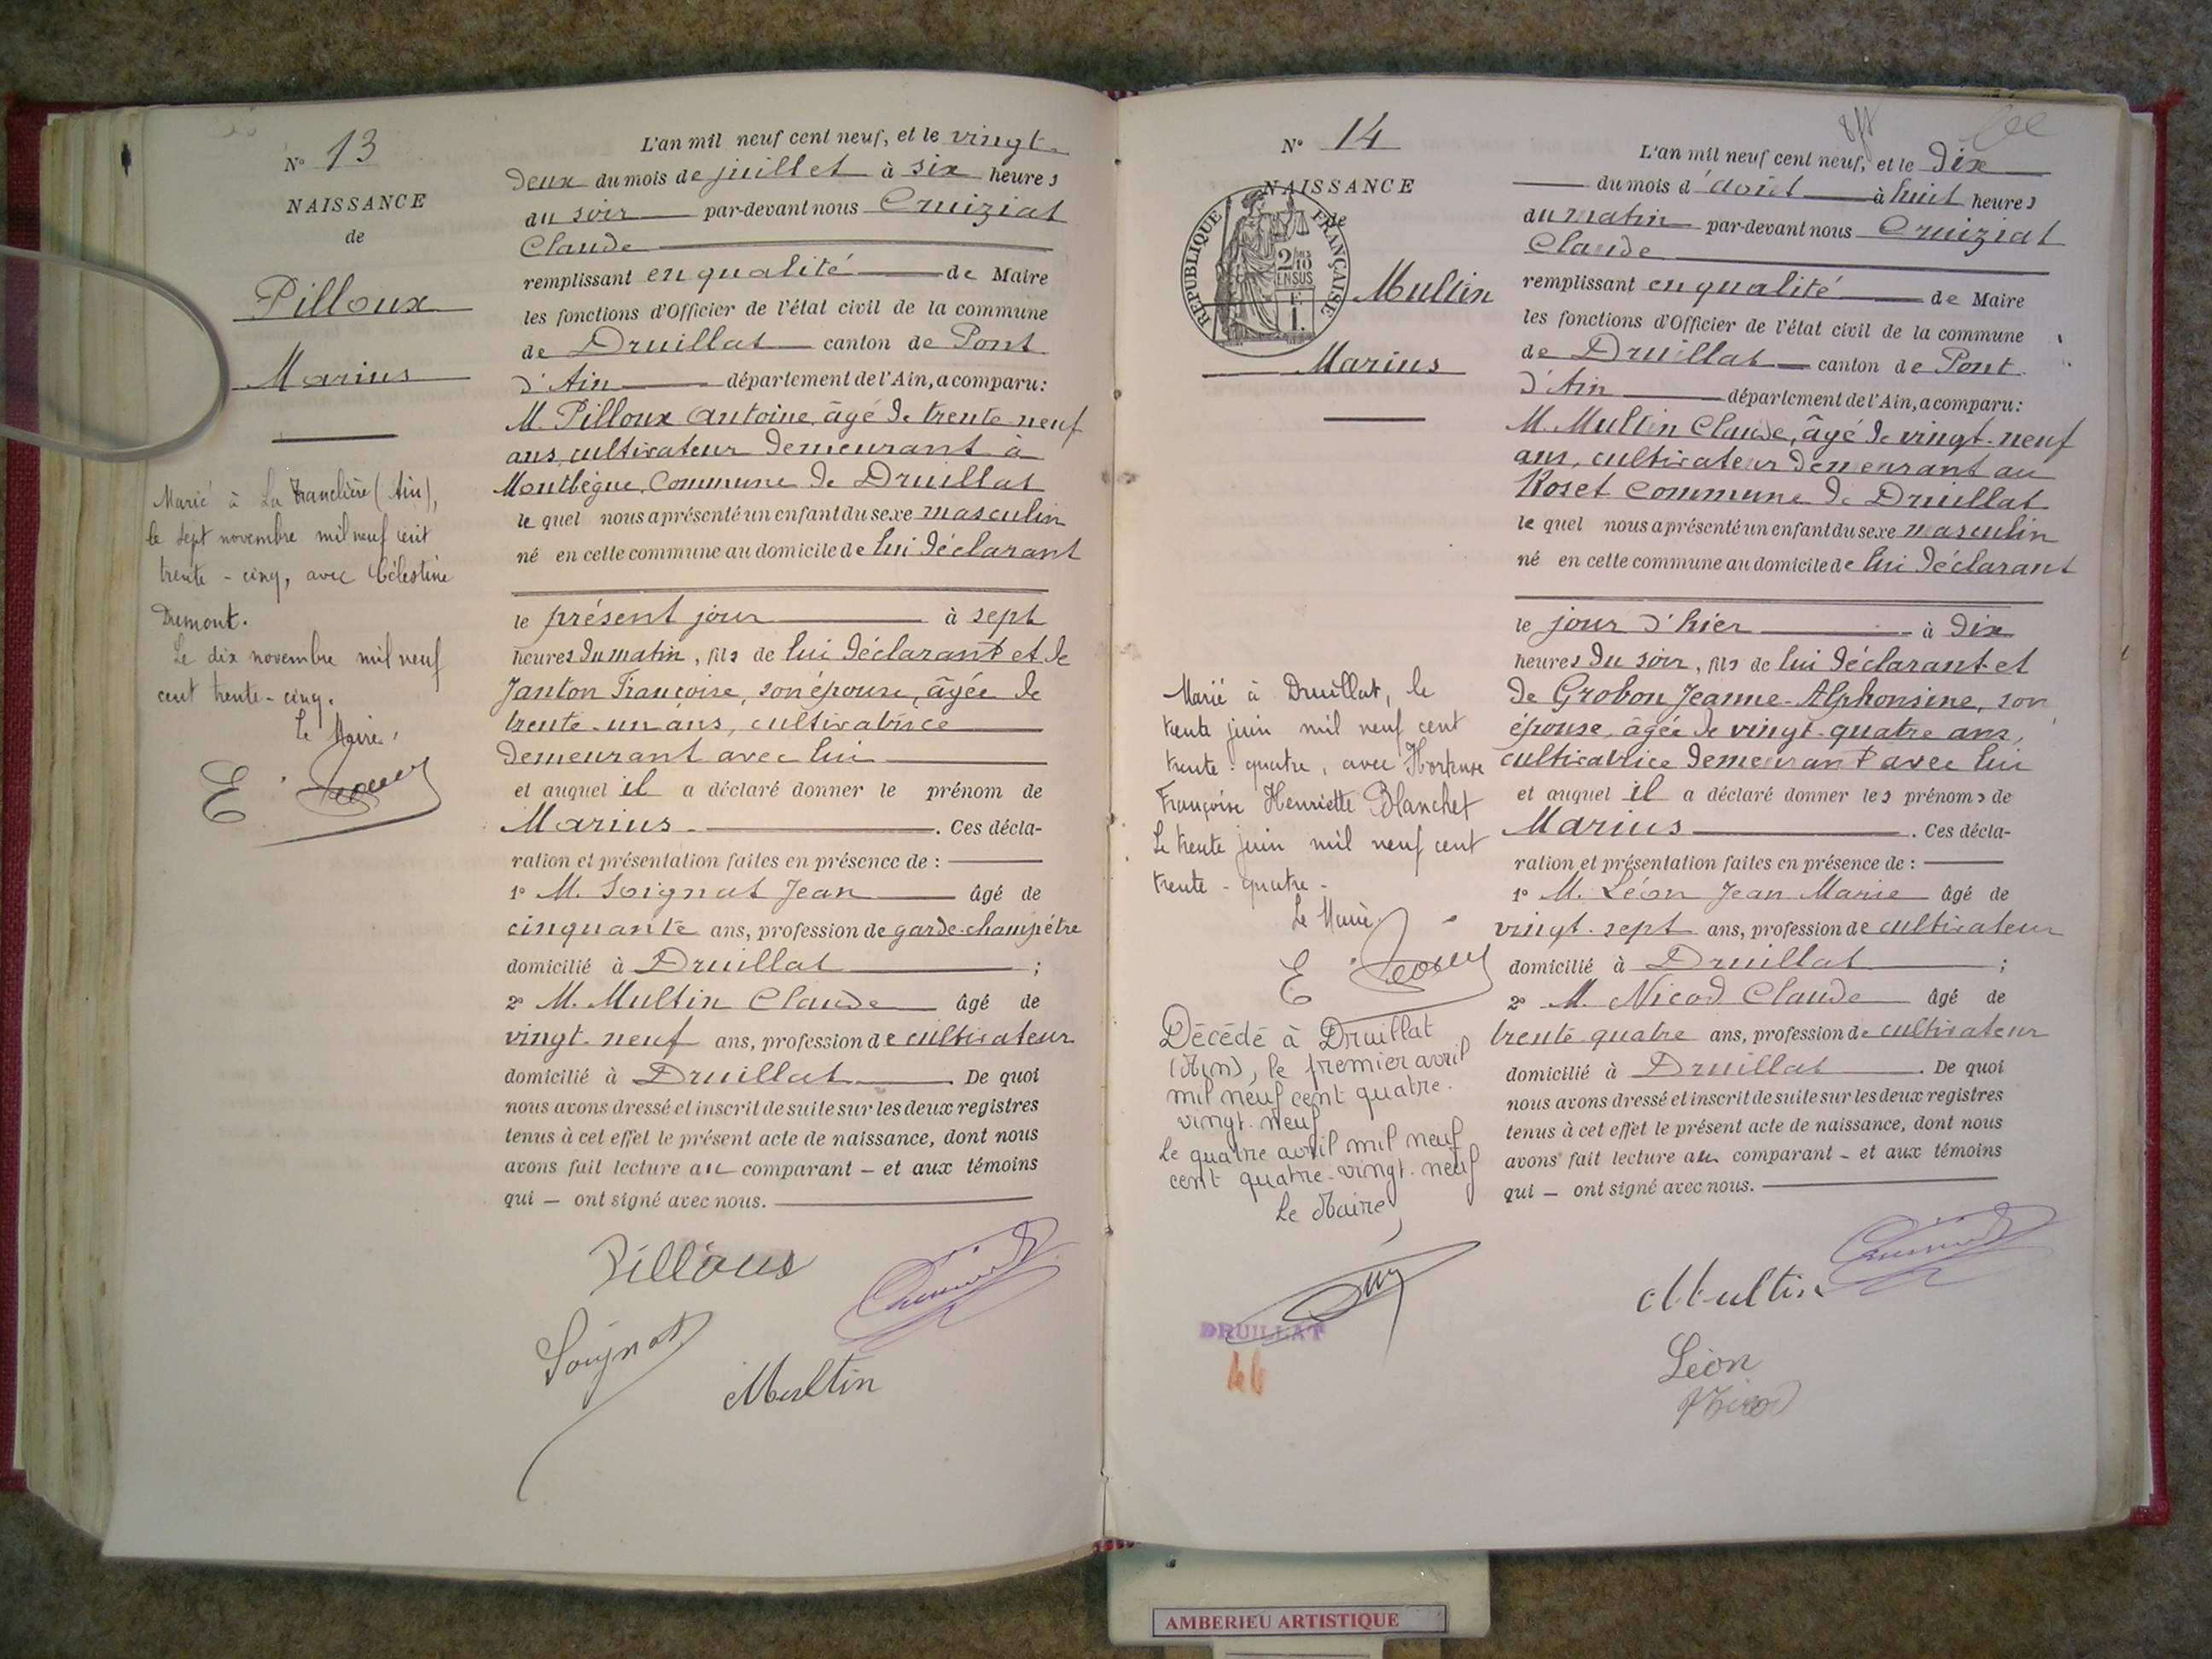 N° 13
NAISSANCE
de
Pilloux
Marius
Marié à La Tranclière (Ain),
le sept novembre mil neuf cent
trente-cinq, avec Célestine
Dumont.
Le dix novembre mil neuf
cent trente-cinq.
Le Maire,
L'an mil neuf cent neuf, et le vingt-
deux du mois de juillet à six heures
du soir par-devant nous Cruiziat
Claude
remplissant en qualité de Maire
les fonctions d'Officier de l'état civil de la commune
de Druillat canton de Pont
d'Ain département de l'Ain, a comparu:
M. Pilloux Antoine, âgé de trente neuf
ans, cultivateur demeurant à
Montbègue, Commune de Druillat
lequel nous a présenté un enfant du sexe masculin
né en cette commune au domicile de lui déclarant
le présent jour à sept
heures du matin, fils de lui déclarant et de
Janton Françoise, son épouse, âgée de
trente-un ans, cultivatrice
demeurant avec lui
et auquel il a déclaré donner le prénom de
Marius. Ces décla-
ration et présentation faites en présence de :
1° M. Soignat Jean âgé de
cinquante ans, profession de garde-champêtre
domicilié à Druillat ;
2° M. Multin Claude âgé de
vingt-neuf ans, profession de cultivateur
domicilié à Druillat. De quoi
nous avons dressé et inscrit de suite sur les deux registres
tenus à cet effet le présent acte de naissance, dont nous
avons fait lecture au comparant – et aux témoins
qui – ont signé avec nous.
Pilloux
Soignat
Multin
N° 14
NAISSANCE
de
RÉPUBLIQUE FRANÇAISE
2/10
EN SUS
Multin
Marius
Marié à Druillat, le
trente juin mil neuf cent
trente-quatre, avec Hortense
Françoise Henriette Blanchet
Le trente juin mil neuf cent
trente-quatre-
Le Maire
Décédé à Druillat
(Ain), le premier avril
mil neuf cent quatre-
vingt-neuf
Le quatre avril mil neuf
cent quatre-vingt-neuf
Le Maire,
DRUILLAT
L'an mil neuf cent neuf, et le dix
du mois d'août à huit heures
du matin par-devant nous Cruiziat
Claude
remplissant en qualité de Maire
les fonctions d'Officier de l'état civil de la commune
de Druillat canton de Pont
d'Ain département de l'Ain, a comparu:
M. Multin Claude, âgé de vingt-neuf
ans, cultivateur demeurant au
Roset commune de Druillat
lequel nous a présenté un enfant du sexe masculin
né en cette commune au domicile de lui déclarant
le jour d'hier à dix
heures du soir, fils de lui déclarant et
de Grobon Jeanne-Alphonsine, son
épouse, âgée de vingt-quatre ans,
cultivatrice demeurant avec lui
et auquel il a déclaré donner les prénoms de
Marius. Ces décla-
ration et présentation faites en présence de :
1° M. Léon Jean Marie âgé de
vingt-sept ans, profession de cultivateur
domicilié à Druillat ;
2° M. Nicod Claude âgé de
trente quatre ans, profession de cultivateur
domicilié à Druillat. De quoi
nous avons dressé et inscrit de suite sur les deux registres
tenus à cet effet le présent acte de naissance, dont nous
avons fait lecture au comparant – et aux témoins
qui – ont signé avec nous.
Multin
Léon
Nicod
AMBERIEU ARTISTIQUE